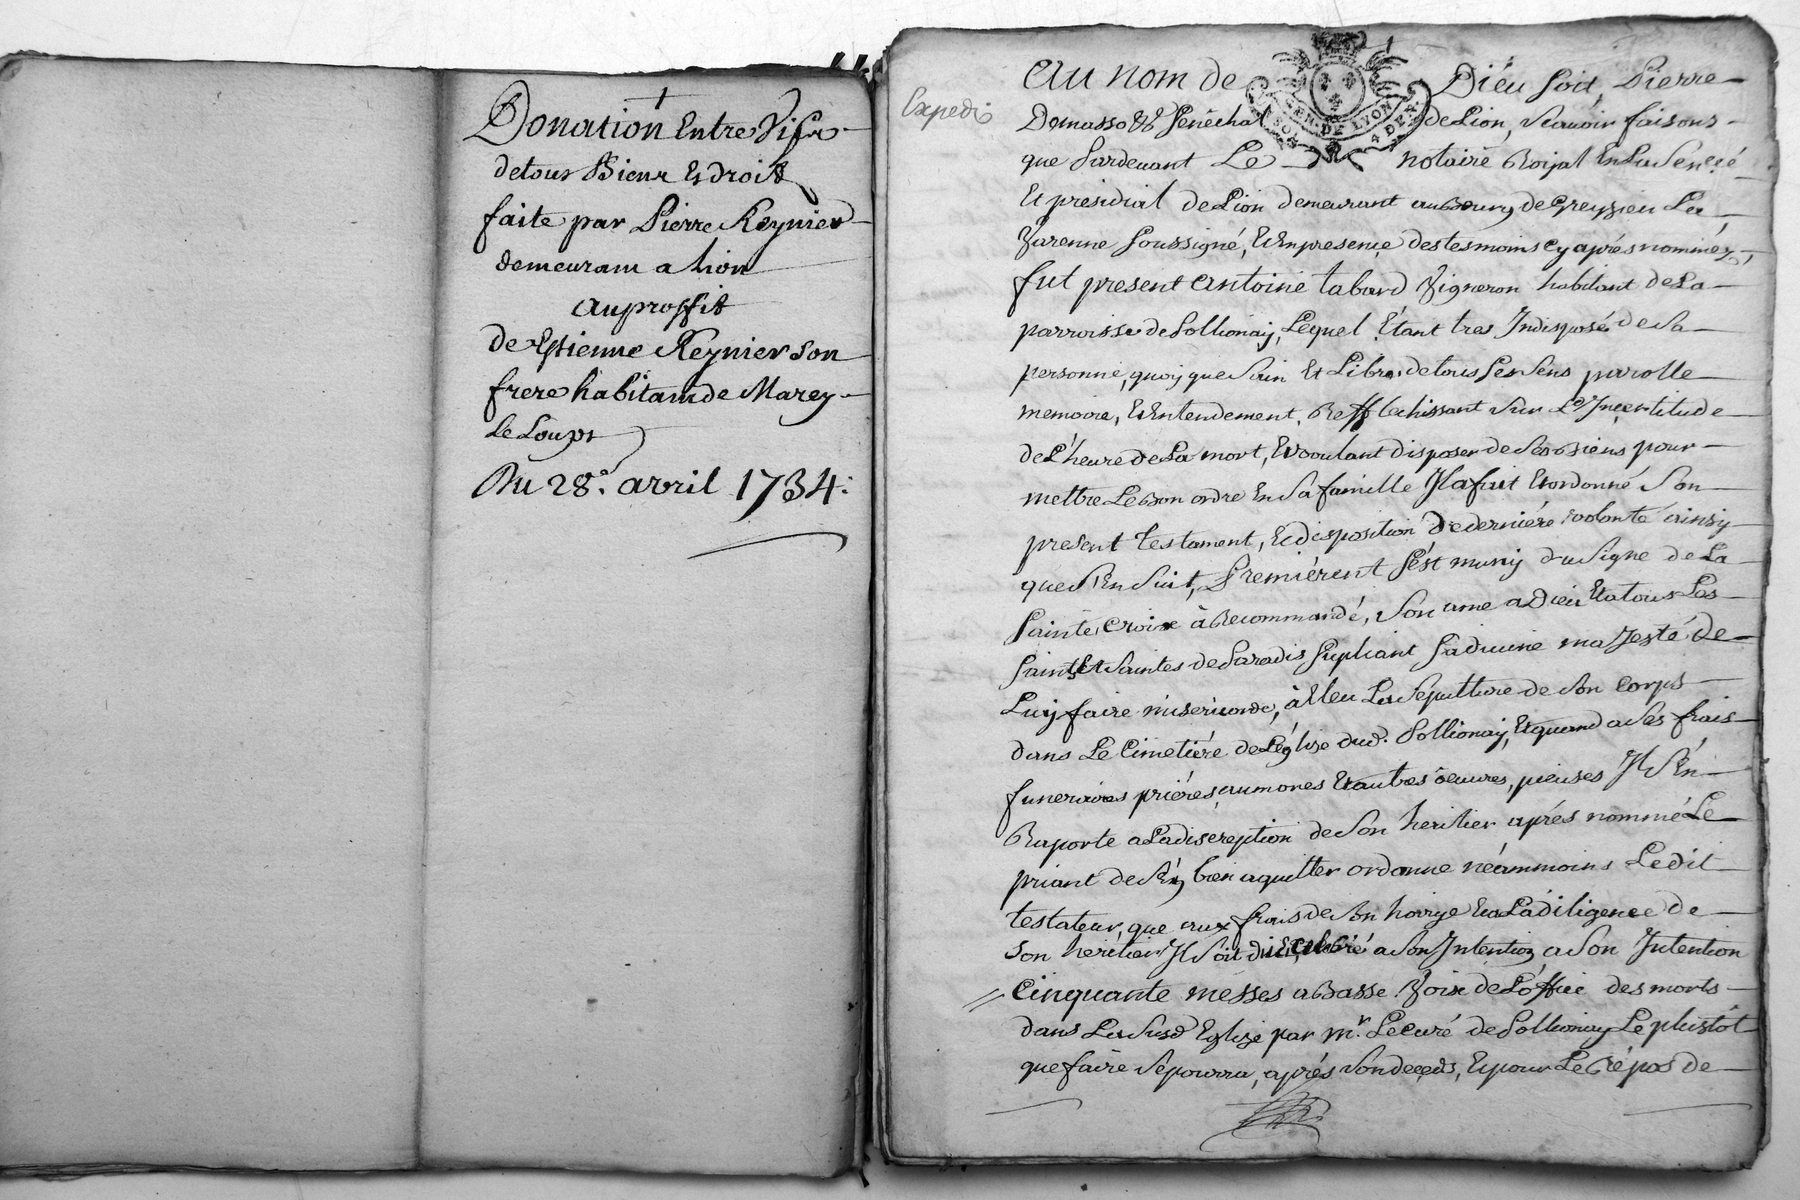 Donation Entre Vifs
de tous Biens Et droits
faite par Pierre Reynier
demeurant a Lion
au proffit
de Estienne Reynier son
frere habitant de Marcy
le Loups
Du 28e. avril 1734.
Expedié
Au nom de Dieu soit, Pierre
Demasso &c Senéchal de Lion, Scavoir faisons
que Pardevant Le notaire Royal En La Sen.cé
Et presidial de Lion demeurant au Bourg de Greyzieu La
Varenne soussigné, Et En presence des tesmoins cy aprés nommez,
fut present Antoine tabard Vigneron habitant de La
parroisse de Pollionay, Lequel Étant tres Indisposé de Sa
personne, quoy que Sain Et Libre de tous Ses Sens parolle
memoire, Et Entendement, Refflechissant Sur L'Incertitude
de L'heure de La mort, Et voulant disposer de Ses Biens pour
mettre Le Bon ordre En Sa famille Il a fait Et ordonné Son
present testament, Et disposition de derniére volonté ainsy
que S'En Suit, Premiérent S'ést muny du Signe de La
Sainte, Croix à Recommandé, Son ame a Dieu Et a tous Les
Saints Et Saintes de Paradis Supliant Sa divine majesté de
Luy faire misericorde, à Eleu La Sépulture de Son Corps
dans Le Cimetiére de L'église dud. Pollionay, Et quand a Ses frais
funeraires priéres, aumones Et autres oeuvres, pieuses Il S'En
Raporte a La discreption de Son heritier aprés nommé Le
priant de S'En bien aquitter ordonne néammoins Ledit
testateur, que aux frais de Son hoirye Et a La diligence de
Son heritier Il Soit dit, célébré a Son Intention, a Son Intention
// Cinquante messes a Basse Voix de L'office des morts
dans La Susd Eglise par mr. Le curé de Pollionay Le plustôt
que faire Se pourra, aprés Son decéds, Et pour Le Répos de
GEN. DE LYON
SOLS
4 DEN.